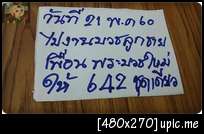 วันที่ 21 พ.ค 60
ไปงานบวชลูกชาย
เพื่อน พระบวชใหม่
ให้ 642 ชุดเดียว
[480x270] upic.me